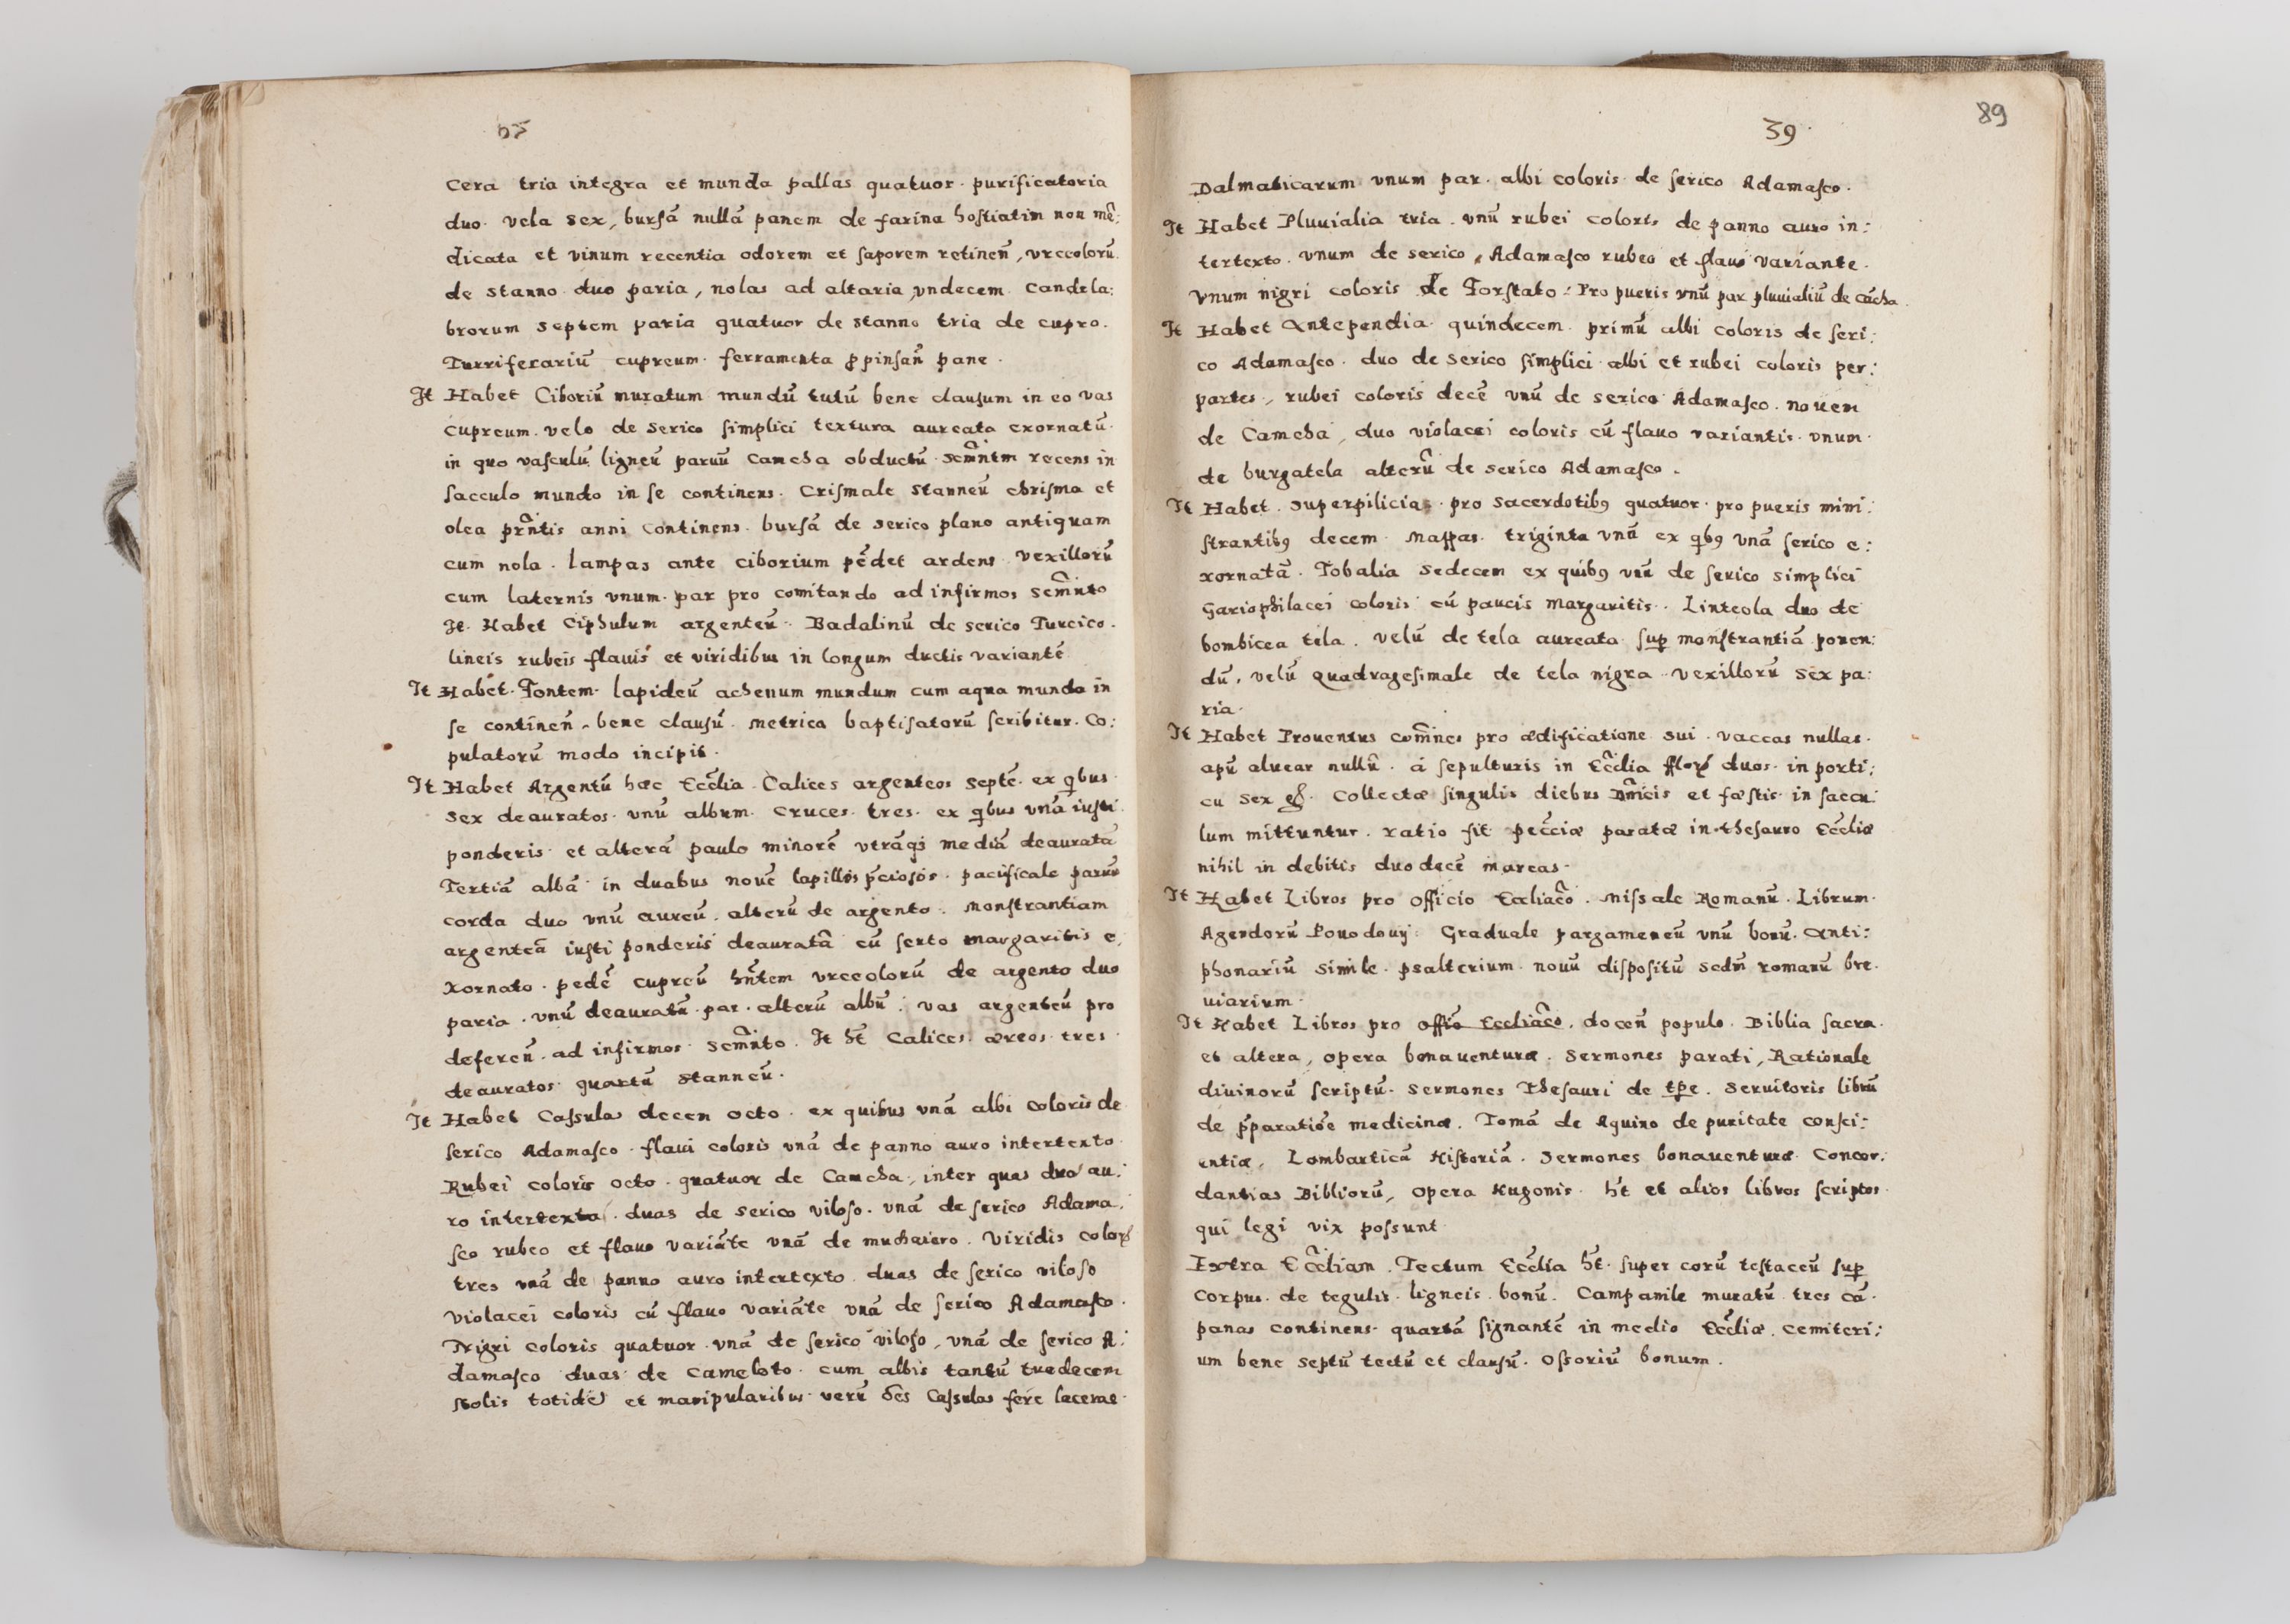 cera tria integra et munda pallas quatuor. purificatoria
duo. vela sex, bursā nullā panem de farina hostiatim non mē:
dicata et vinum recentia odorem et saporem retineñ, vrceolorū
de stanno duo paria, nolas ad altaria vndecem. Candela:
brorum septem paria quatuor de stanno tria de cupro.
Turriferariū cupreum. ferramenta ꝓ pinsañ pane.
It Habet Ciboriū muratum mundū tutū bene clausum in eo vas
cupreum. velo de serico simplici textura aureata exornatū.
in quo vasculū ligneū paruū Camcha obductū. Scm̃ntm recens in
sacculo mundo in se continens. Crismale stanneū chrisma et
olea prñtis anni continens. bursā de serico plano antiquam
cum nola. lampas ante ciborium pēdet ardens. vexillorū
cum laternis vnum. par pro comitando ad infirmos scm̃nto
It. Habet Ciphulum argenteū. Badalinū de serico Turcico.
lineis rubeis flauis et viridibus in longum ductis variantē
It Habet. Fontem. lapideū achenum mundum cum aqua munda in
se contineñ. bene clausū. Metrica baptisatorū scribitur. Co:
pulatorū modo incipit.
It Habet Argentū hæc Eccl̃ia. Calices argenteos septē. ex qbus
sex deauratos. vnū album. Cruces. tres. ex qbus vnā iusti
ponderis. et alterā paulo minorē vtrāqȝ mediā deauratā
Tertiā albā in duabus nouē lapillis p̃ciosos. pacificale paruū
corda duo vnū aureū. alterū de argento. Monstrantiam
argenteā iusti ponderis deauratā cū serto margaritis e:
xornato. pedē cupreū hñtem vrceolorū de argento duo
paria. vnū deauratū. par. alterū albū. vas argenteū pro
defereñ. ad infirmos. Scm̃nto. It ht̃ Calices. æreos. tres.
deauratos. quartū Stanneū.
It Habet Cassulas decem octo. ex quibus vnā albi coloris de
serico Adamasco. flaui coloris vnā de panno auro intertexto.
Rubei coloris octo. quatuor de Camcha, inter quas duo au:
ro intertexta. duas de serico viloso. vnā de serico Adama:
sco rubeo et flauo variāte vnā de muchaiero. Viridis color
tres vnā de panno auro intertexto. duas de serico viloso
violacei coloris cū flauo variāte vnā de serico Adamasco.
Nigri coloris quatuor vnā de serico viloso, vnā de serico A:
damasco duas de cameloto. cum albis tantū tredecem
stolis totidē et manipularibus. verū oēs Cassulas fere laceræ.
39.
89
Dalmaticarum vnum par. albi coloris de serico Adamasco.
It Habet Pluuialia tria. vnū rubei coloris de panno auro in:
tertexto. vnum de serico Adamasco rubeo et flauo variante.
vnum nigri coloris de Forstato: Pro pueris vnū par pluuialiū de cācha.
It Habet Antependia quindecem. primū albi coloris de seri:
co Adamasco. duo de serico simplici albi et rubei coloris per:
partes, rubei coloris decē vnū de serico Adamasco. nouem
de Camcha, duo violacei coloris cū flauo variantis. vnum.
de burgatela alterū de serico Adamasco.
It Habet. superpilicia. pro sacerdotibꝯ quatuor. pro pueris mini:
strantibꝯ decem. Mappas. triginta vnā ex qbꝯ vnā serico e:
xornatā. Tobalia sedecem ex quibꝯ vnū de serico simplici
Gariophilacei coloris cū paucis margaritis. Linteola duo de
bombicea tela. velū de tela aureata sup monstrantiā ponen:
dū. velū quadragesimale de tela nigra. vexillorū sex pa:
ria.
It Habet Prouentus com̃nes pro ædificatione sui. vaccas nullas.
apū aluear nullū. á sepulturis in Eccl̃ia flor. duos. in porti:
cu sex gͦ. Collectæ singulis diebus Dn̄icis et fæstis in saccu:
lum mittuntur. ratio fit pecc̃iæ paratæ in thesauro Eccl̃iæ
nihil in debitis duodecē marcas.
It Habet Libros pro officio Eccliac̃o. Missale Romanū. Librum.
Agendorū Powodowij. Graduale pargameneū vnū bonū. Anti:
phonariū simile. psalterium. nouū dispositū sedm̃ romanū bre.
uiarium.
It Habet Libros pro offiō Eccliac̃o. doceñ populo. Biblia sacra.
et altera, opera bonauenturæ. Sermones parati, Rationale
diuinorū scriptū. Sermones Thesauri de tp̃e. Seruitoris librū
de p̃paratiōe medicinæ. Tomā de Aquino de puritate consci:
entiæ, Lombarticā Historiā. Sermones bonauenturæ Concor:
dantias Bibliorū, opera Hugonis. ht̃ et alios libros scriptos.
qui legi vix possunt
Extra Eccl̃iam. Tectum Eccl̃ia ht̃. super corū testaceū sup
corpus. de tegulis. ligneis. bonū. Campanile muratū tres cā.
panas continens quartā signantē in medio Eccl̃iæ. Cemiteri:
um bene septū tectū et clausū. Ossoriū bonum.